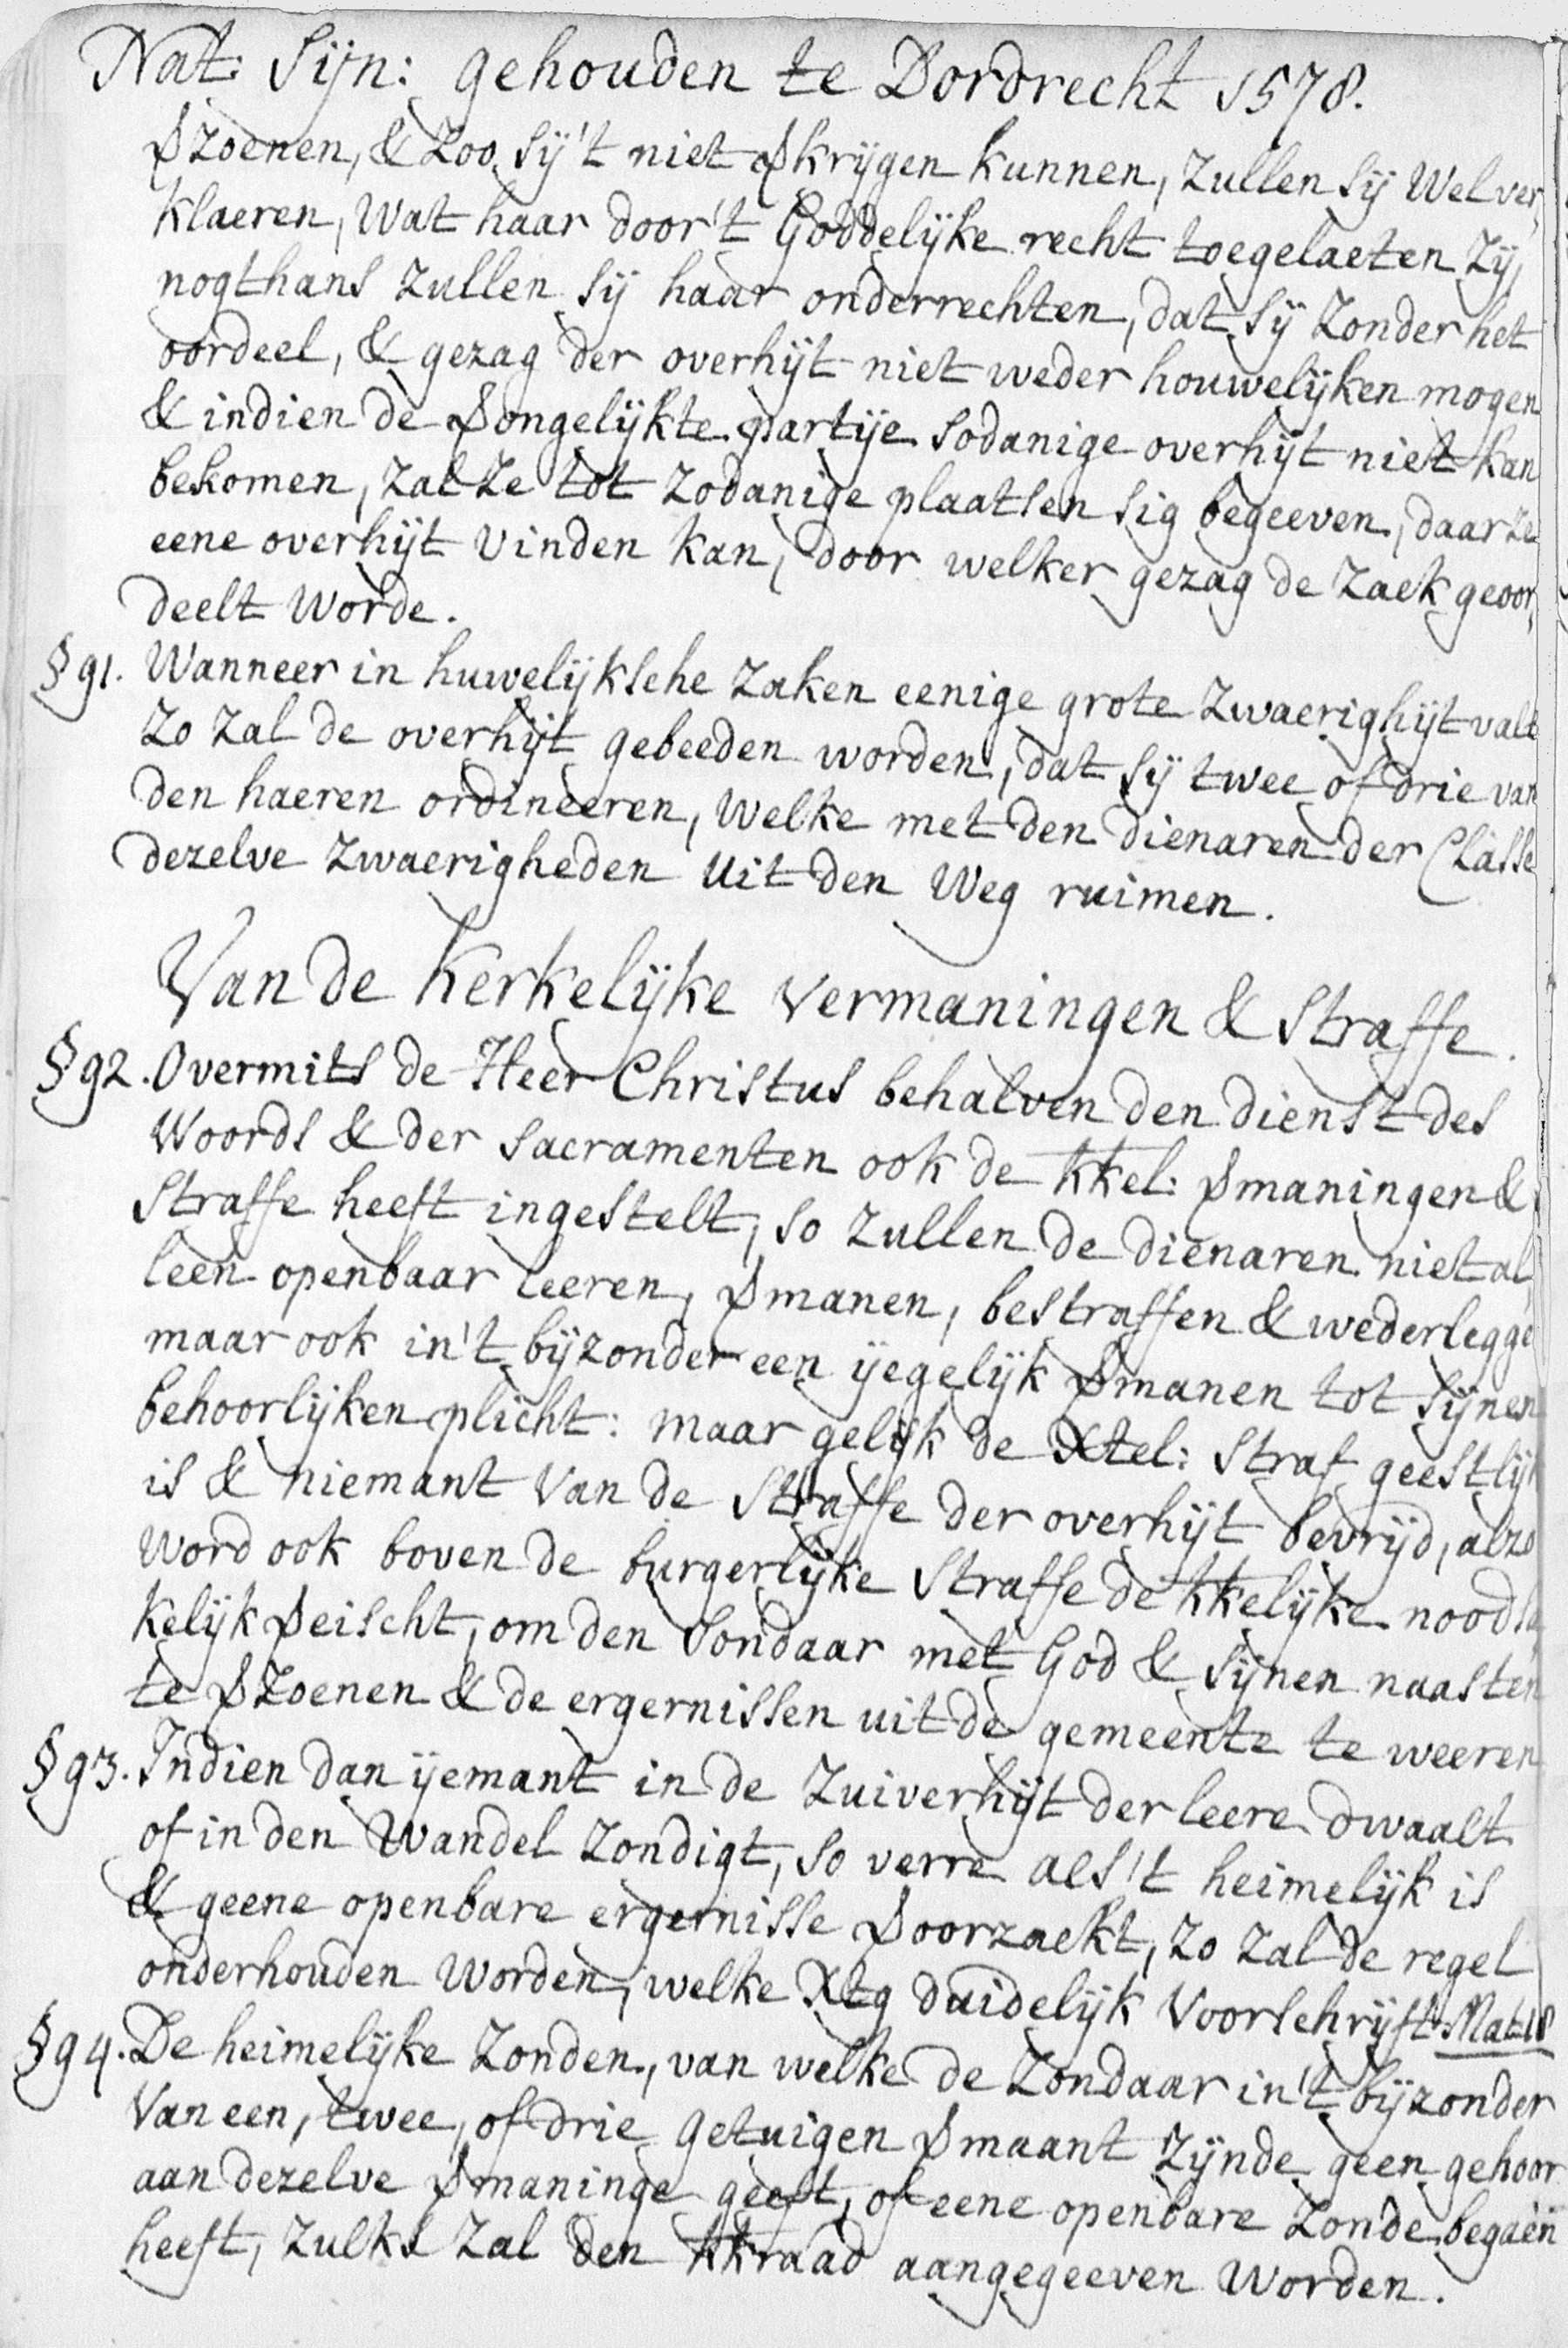 Nat: Sijn: gehouden te Dordrecht 1578.
ꟈzoenen, & zoo sij 't niet ꟈkrijgen kunnen, zullen sij wel ver,
klaeren, wat haar door 't Goddelijke recht toegelaeten zij,
nogthans zullen sij haar onderrechten, dat sij zonder het
oordeel, & gezag der overhijt niet weder houwelijken mogen
& indien de ꟈongelijkte partije sodanige overhijt niet kan
bekomen, zal ze tot zodanige plaatsen sig begeeven, daar ze
eene overhijt vinden kan, door welker gezag de zaek geoor,
deelt worde.
§ 91. Wanneer in huwelijksche zaken eenige grote zwaerighijt valt
zo zal de overhijt gebeeden worden, dat sij twee of drie van
den haeren ordineeren, welke met den dienaren der Classe
dezelve zwaerigheden uit den weg ruimen.
Van de kerkelijke vermaningen & straffe.
§ 92. Overmits de Heer Christus behalven den dienst des
Woords & der sacramenten ook de kkel: ꟈmaningen &
straffe heeft ingestelt, so zullen de dienaren niet al,
leen openbaar leeren, ꟈmanen, bestraffen & wederlegge
maar ook in 't bijzonder een ijegelijk ꟈmanen tot sijnen
behoorlijken plicht: maar gelijk de Xtel: straf geestlijk
is & niemant van de straffe der overhijt bevrijd, alzo
word ook boven de burgerlijke straffe de kkelijke noodsa
kelijk ꟈeischt, om den sondaar met God & sijnen naasten
te ꟈzoenen & de ergernissen uit de gemeente te weeren
§ 93. Indien dan ijemant in de zuiverhijt der leere dwaalt
of in den wandel zondigt, so verre als 't heimelijk is
& geene openbare ergernisse ꟈoorzaekt, zo zal de regel
onderhouden worden, welke Xtg duidelijk voorschrijft Mat 18
§ 94. De heimelijke zonden, van welke de zondaar in 't bijzonder
van een, twee, of drie getuigen ꟈmaant zijnde geen gehoor
aan dezelve ꟈmaninge geeft, of eene openbare zonde begaen
heeft, zulks zal den kkraad aangegeeven worden.